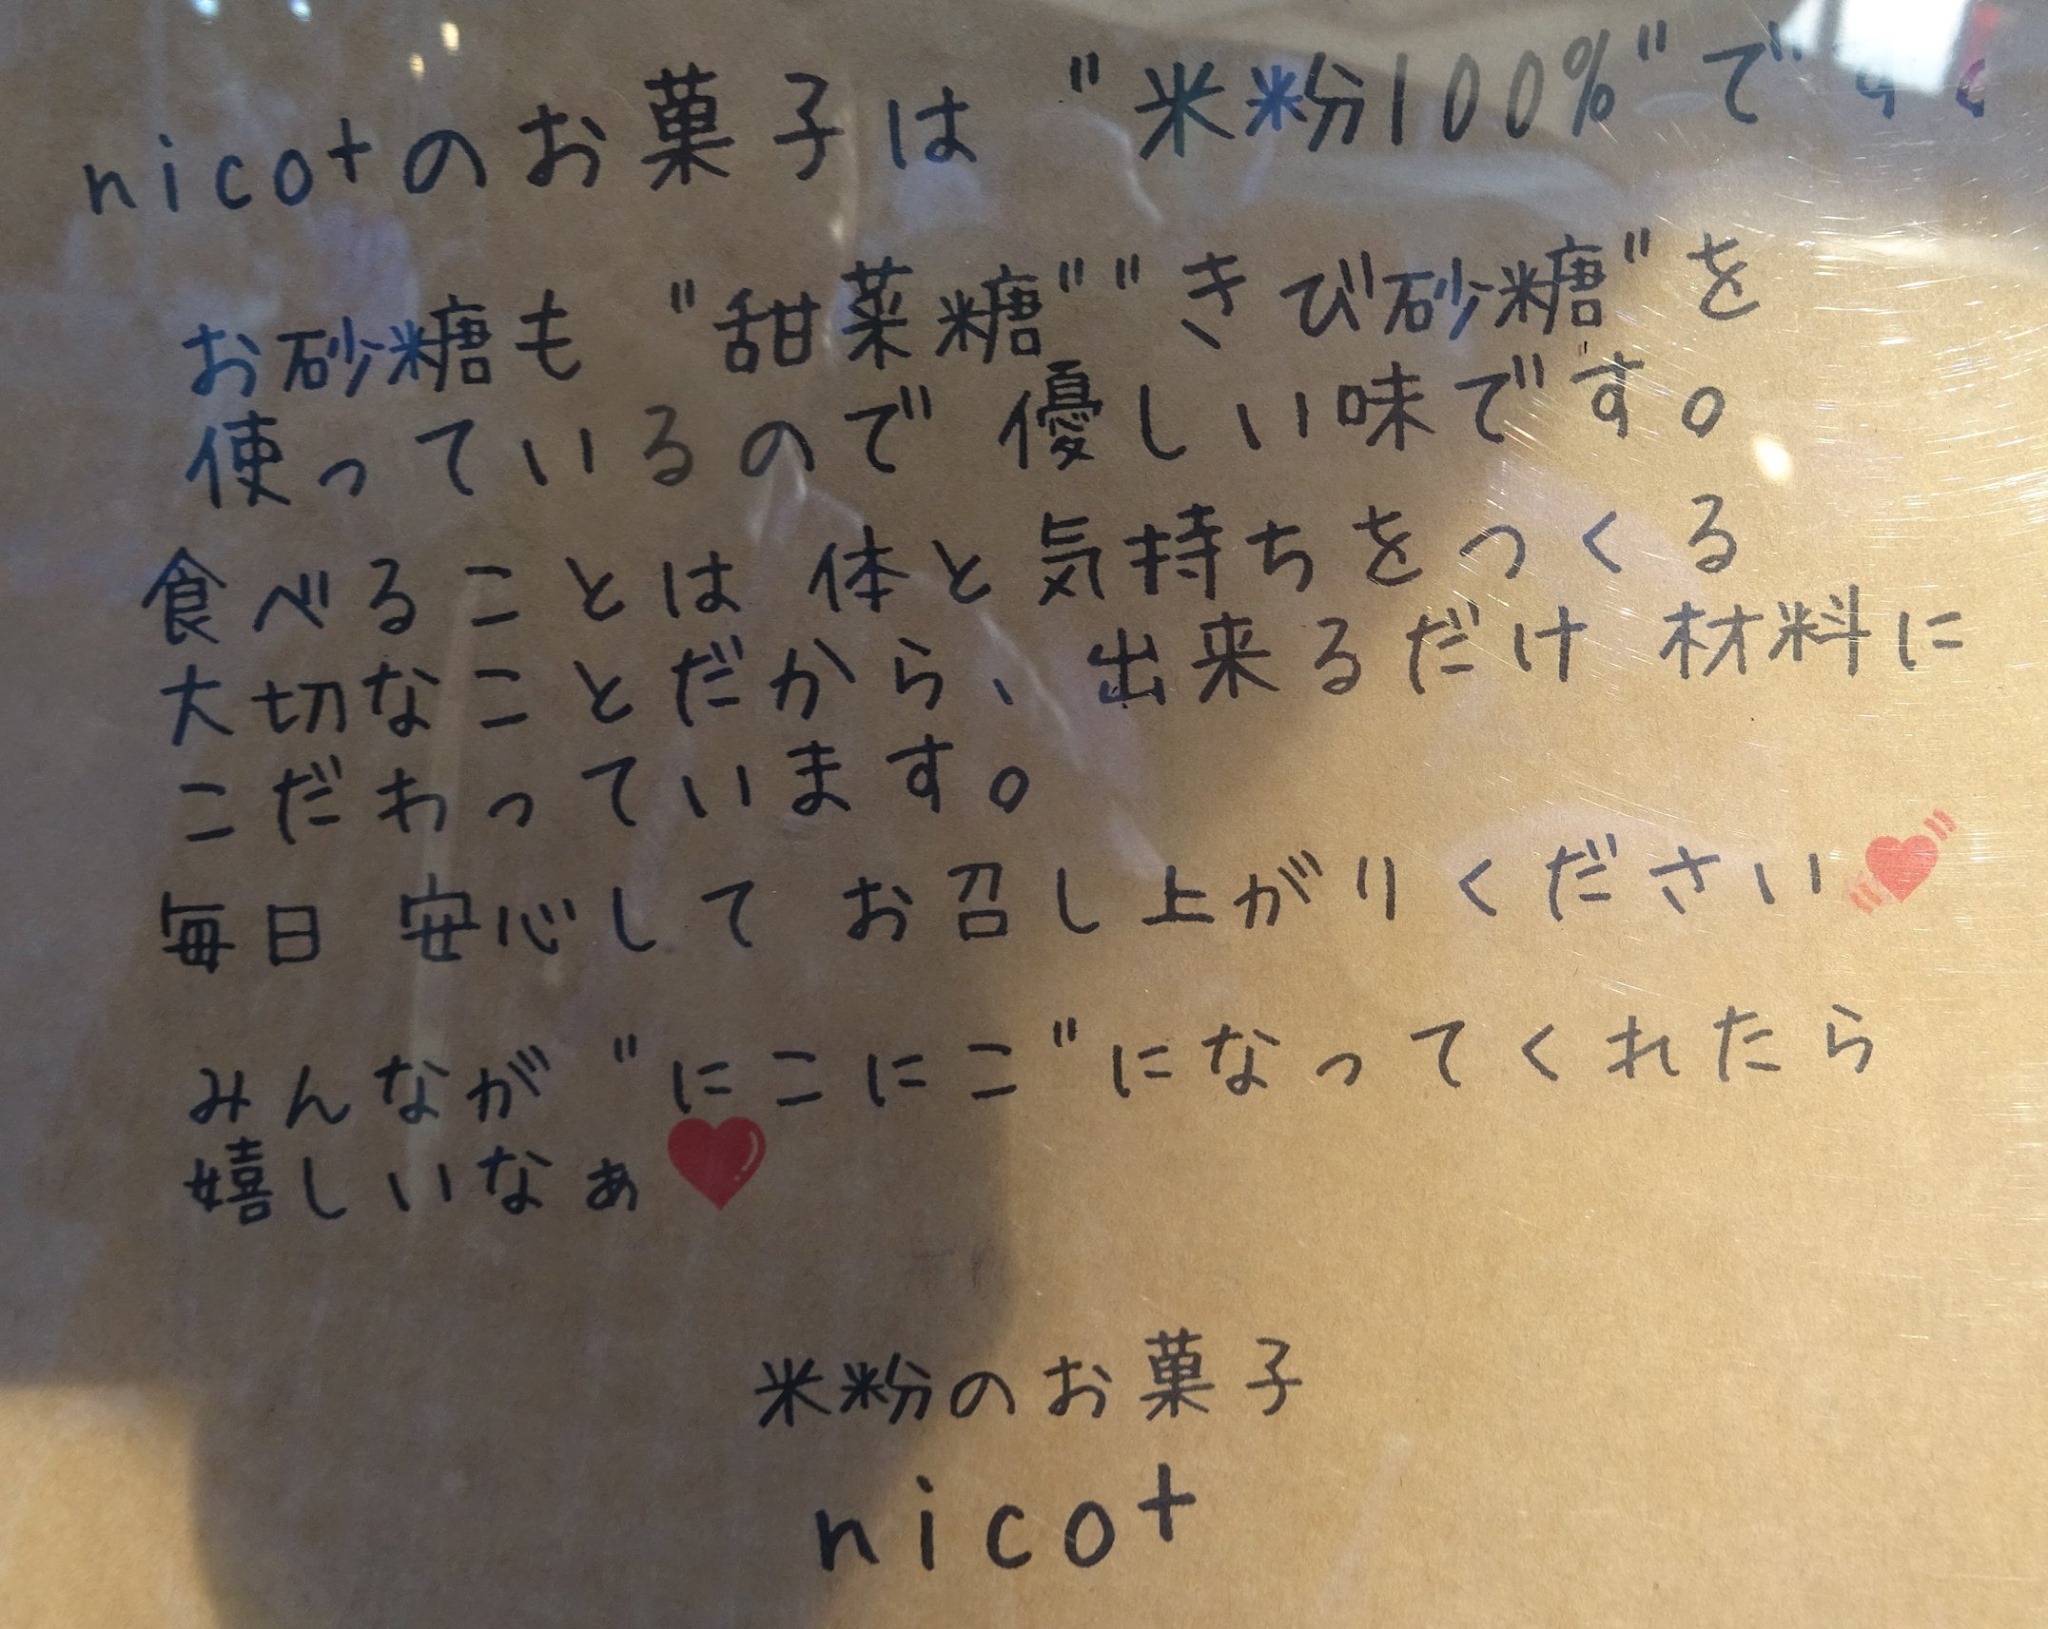 nico+のお菓子は "米粉100%"です
お砂糖も "甜菜糖""きび砂糖"を
使っているので 優しい味です。
食べることは 体と気持ちをつくる
大切なことだから、出来るだけ 材料に
こだわっています。
毎日 安心して お召し上がりください
みんなが "にこにこ"になってくれたら
嬉しいなぁ
米粉のお菓子
nico+